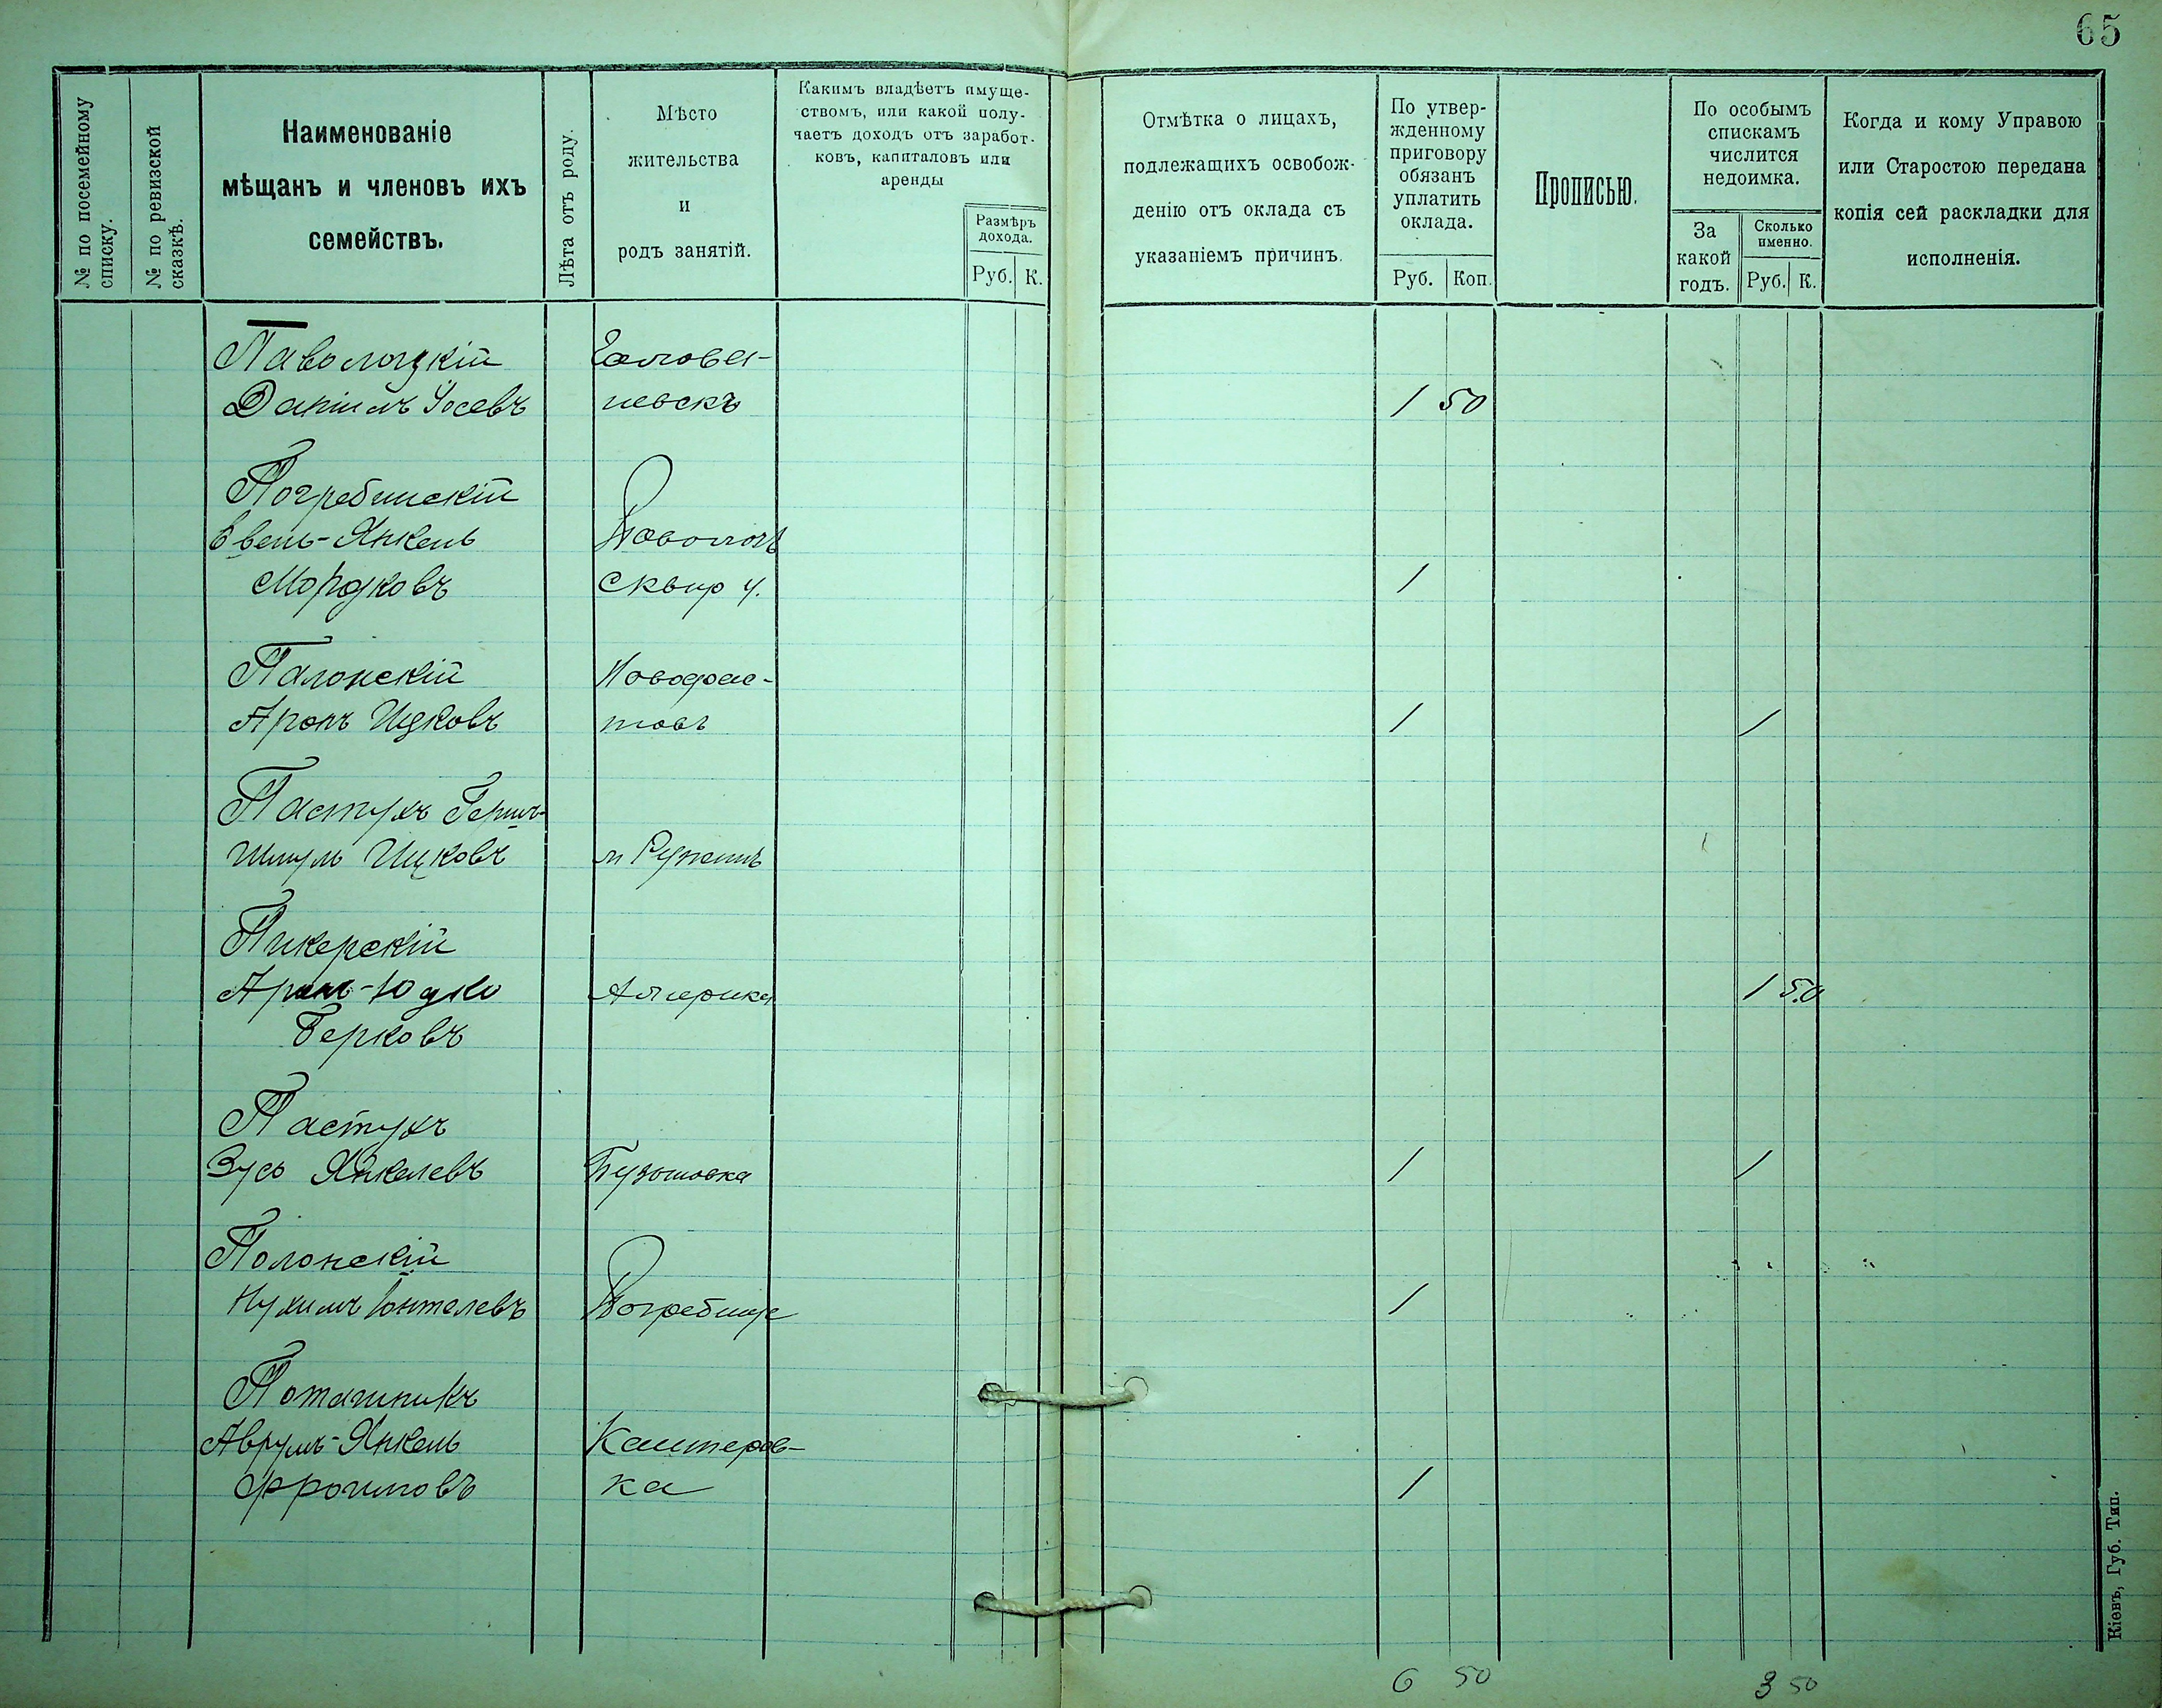 65
№ по посемейному списку.
№ по ревизской сказкѣ.
Наименованіе
мѣщанъ и членовъ ихъ
семействъ.
Лѣта отъ роду.
Мѣсто
жительства
и
родъ занятій.
Какимъ владѣетъ имуще-
ствомъ, или какой полу-
чаетъ доходъ отъ заработ-
ковъ, капиталовъ или
аренды
Размѣръ
дохода.
Руб. К.
Отмѣтка о лицахъ,
подлежащихъ освобож-
денію отъ оклада съ
указаніемъ причинъ.
По утвер-
жденному
приговору
обязанъ
уплатить
оклада.
Руб. Коп.
Прописью.
По особымъ
спискамъ
числится
недоимка.
За
какой
годъ.
Сколько
именно.
Руб. К.
Когда и кому Управою
или Старостою передана
копія сей раскладки для
исполненія.
Паволоцкій Голова-
Даніилъ Іосевъ невскъ 1 50
Погребинскій
-Янкель Паволочь
Мордковъ Сквир у. 1
Палонскій Новофас-
Аронъ Ицковъ товъ 1 1
Пастухъ Герш-
Шмуль Ицковъ м Ружинъ
Пикерскій
Арон-Юдко Америка 1 50
Берковъ
Пастухъ
Зусь Янкелевъ Бузовка 1 1
Полонскій
Нухимъ Юнтелевъ Погребище 1
Поташникъ
Аврумъ-Янкель Кантеров-
Фроимовъ ка 1
6 50 3 50
Кіевъ, Губ. Тип.